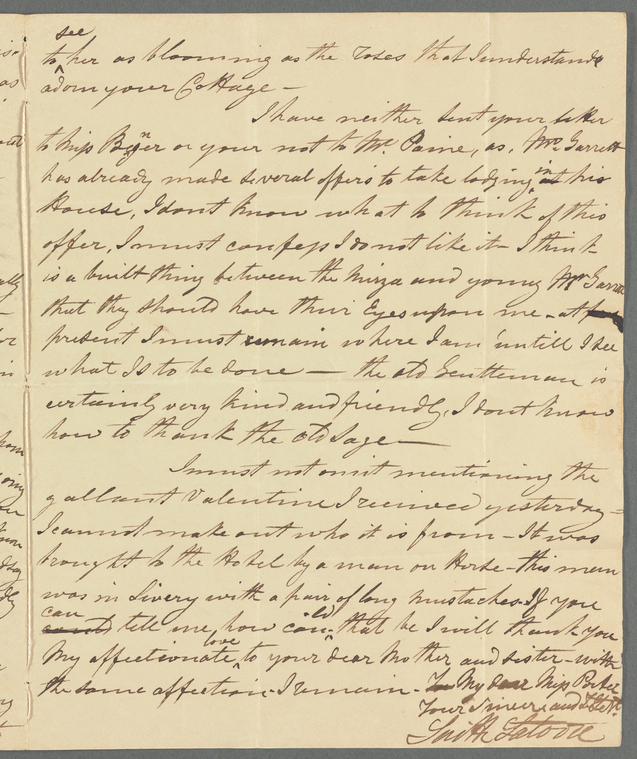 see
to her as blooming as the roses that I understand
adorn your Cottage —
I have neither sent your letter
to Miss or your not to Mr. Paine, as, Mr. Garrett
has already made several offers to take lodging in at his
House, I dont know what to think of this
offer, I must confess I do not like it - I think
is a built thing between the Mirza and young Mr Garrett
that thy should have their Eyes upon me - at
present I must remain where I am 'untill I see
what Is to be done — the old Gentleman is
certainly very kind and friendly, I dont know
how to thank the old Sage —
I must not omit mentioning the
gallant Valentine I received yesterday -
I cannot make out who it is from - It was
brought to the Hotel by a man on Horse - this man
was in Livery with a pair of long mustaches. If you
can
tell me, how could that be I will thank you
My affectionate love to your dear Mother and sister - with
the same affection I remain - My dear Miss Porter
Your Sincere and